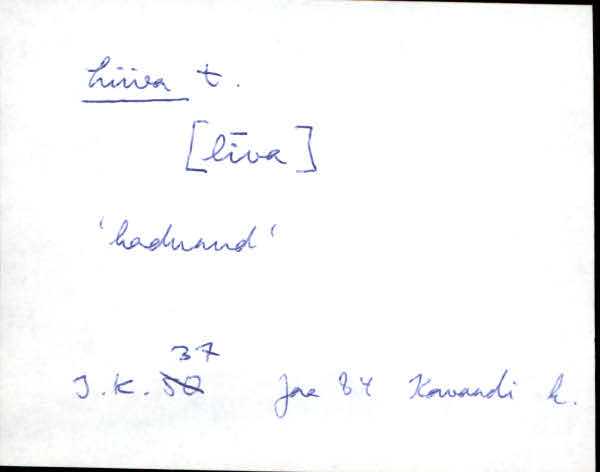 Liiva t.
[līva]
'kadunud'
37
J.K. 50 Jaa 84 Kavandi k.